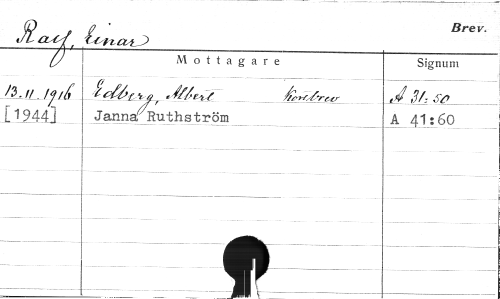 Brev.
Ralf, Einar
Mottagare Signum
13.11.1916 Edberg, Albert Korrbrev A 31:50
[1944] Janna Ruthström A 41:60